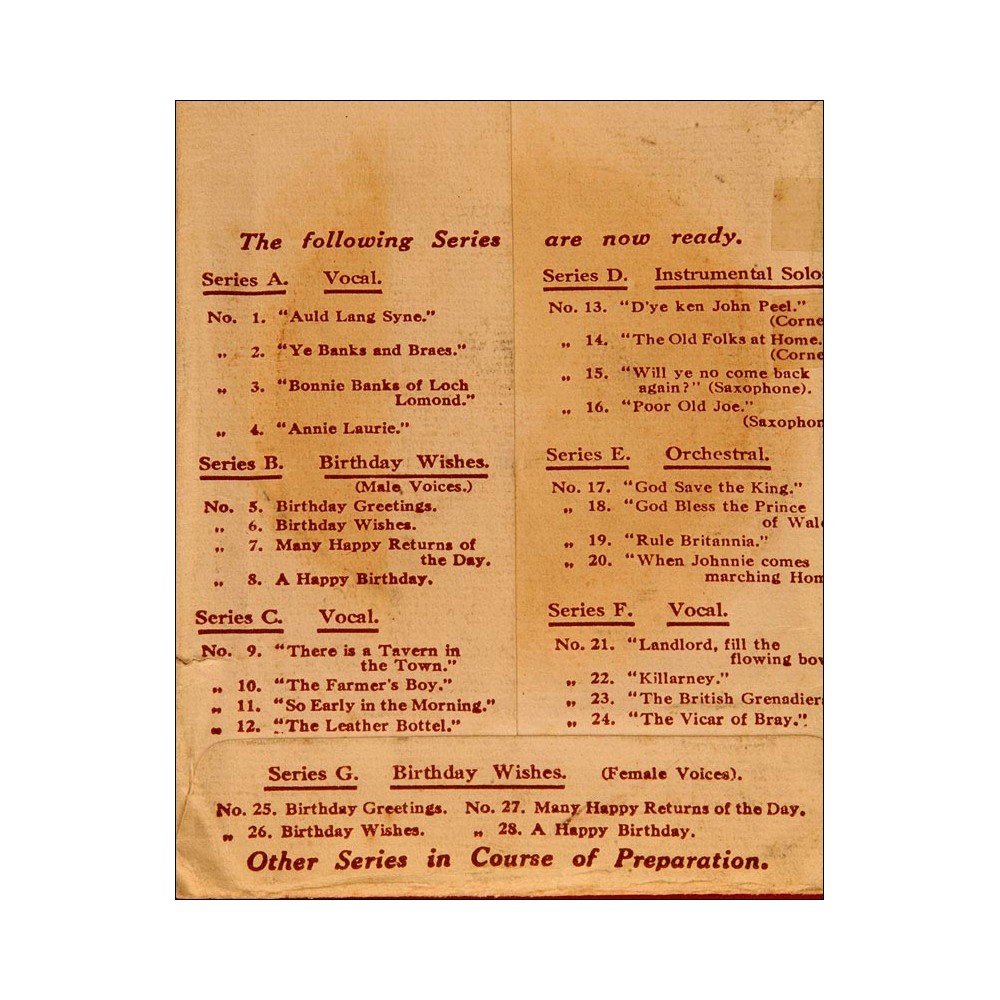 The following Series are now ready.
Series A. Vocal.
No. 1. "Auld Lang Syne."
„ 2. "Ye Banks and Braes."
„ 3. "Bonnie Banks of Loch
Lomond."
„ 4. "Annie Laurie."
Series B. Birthday Wishes.
(Male Voices.)
No. 5. Birthday Greetings.
„ 6. Birthday Wishes.
„ 7. Many Happy Returns of
the Day.
„ 8. A Happy Birthday.
Series C. Vocal.
No. 9. "There is a Tavern in
the Town."
„ 10. "The Farmer's Boy."
„ 11. "So Early in the Morning."
„ 12. "The Leather Bottel."
Series D. Instrumental Solo
No. 13. "D'ye ken John Peel."
(Corne
„ 14. "The Old Folks at Home.
(Corne
„ 15. "Will ye no come back
again?" (Saxophone).
„ 16. "Poor Old Joe."
(Saxophon
Series E. Orchestral.
No. 17. "God Save the King."
„ 18. "God Bless the Prince
of Wale
„ 19. "Rule Britannia."
„ 20. "When Johnnie comes
marching Hom
Series F. Vocal.
No. 21. "Landlord, fill the
flowing bow
„ 22. "Killarney."
„ 23. "The British Grenadiers
„ 24. "The Vicar of Bray."
Series G. Birthday Wishes. (Female Voices).
No. 25. Birthday Greetings. No. 27. Many Happy Returns of the Day.
„ 26. Birthday Wishes. „ 28. A Happy Birthday.
Other Series in Course of Preparation.